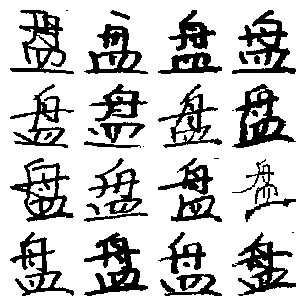 盘盘盘盘
盘盘盘盘
盘盘盘盘
盘盘盘盘